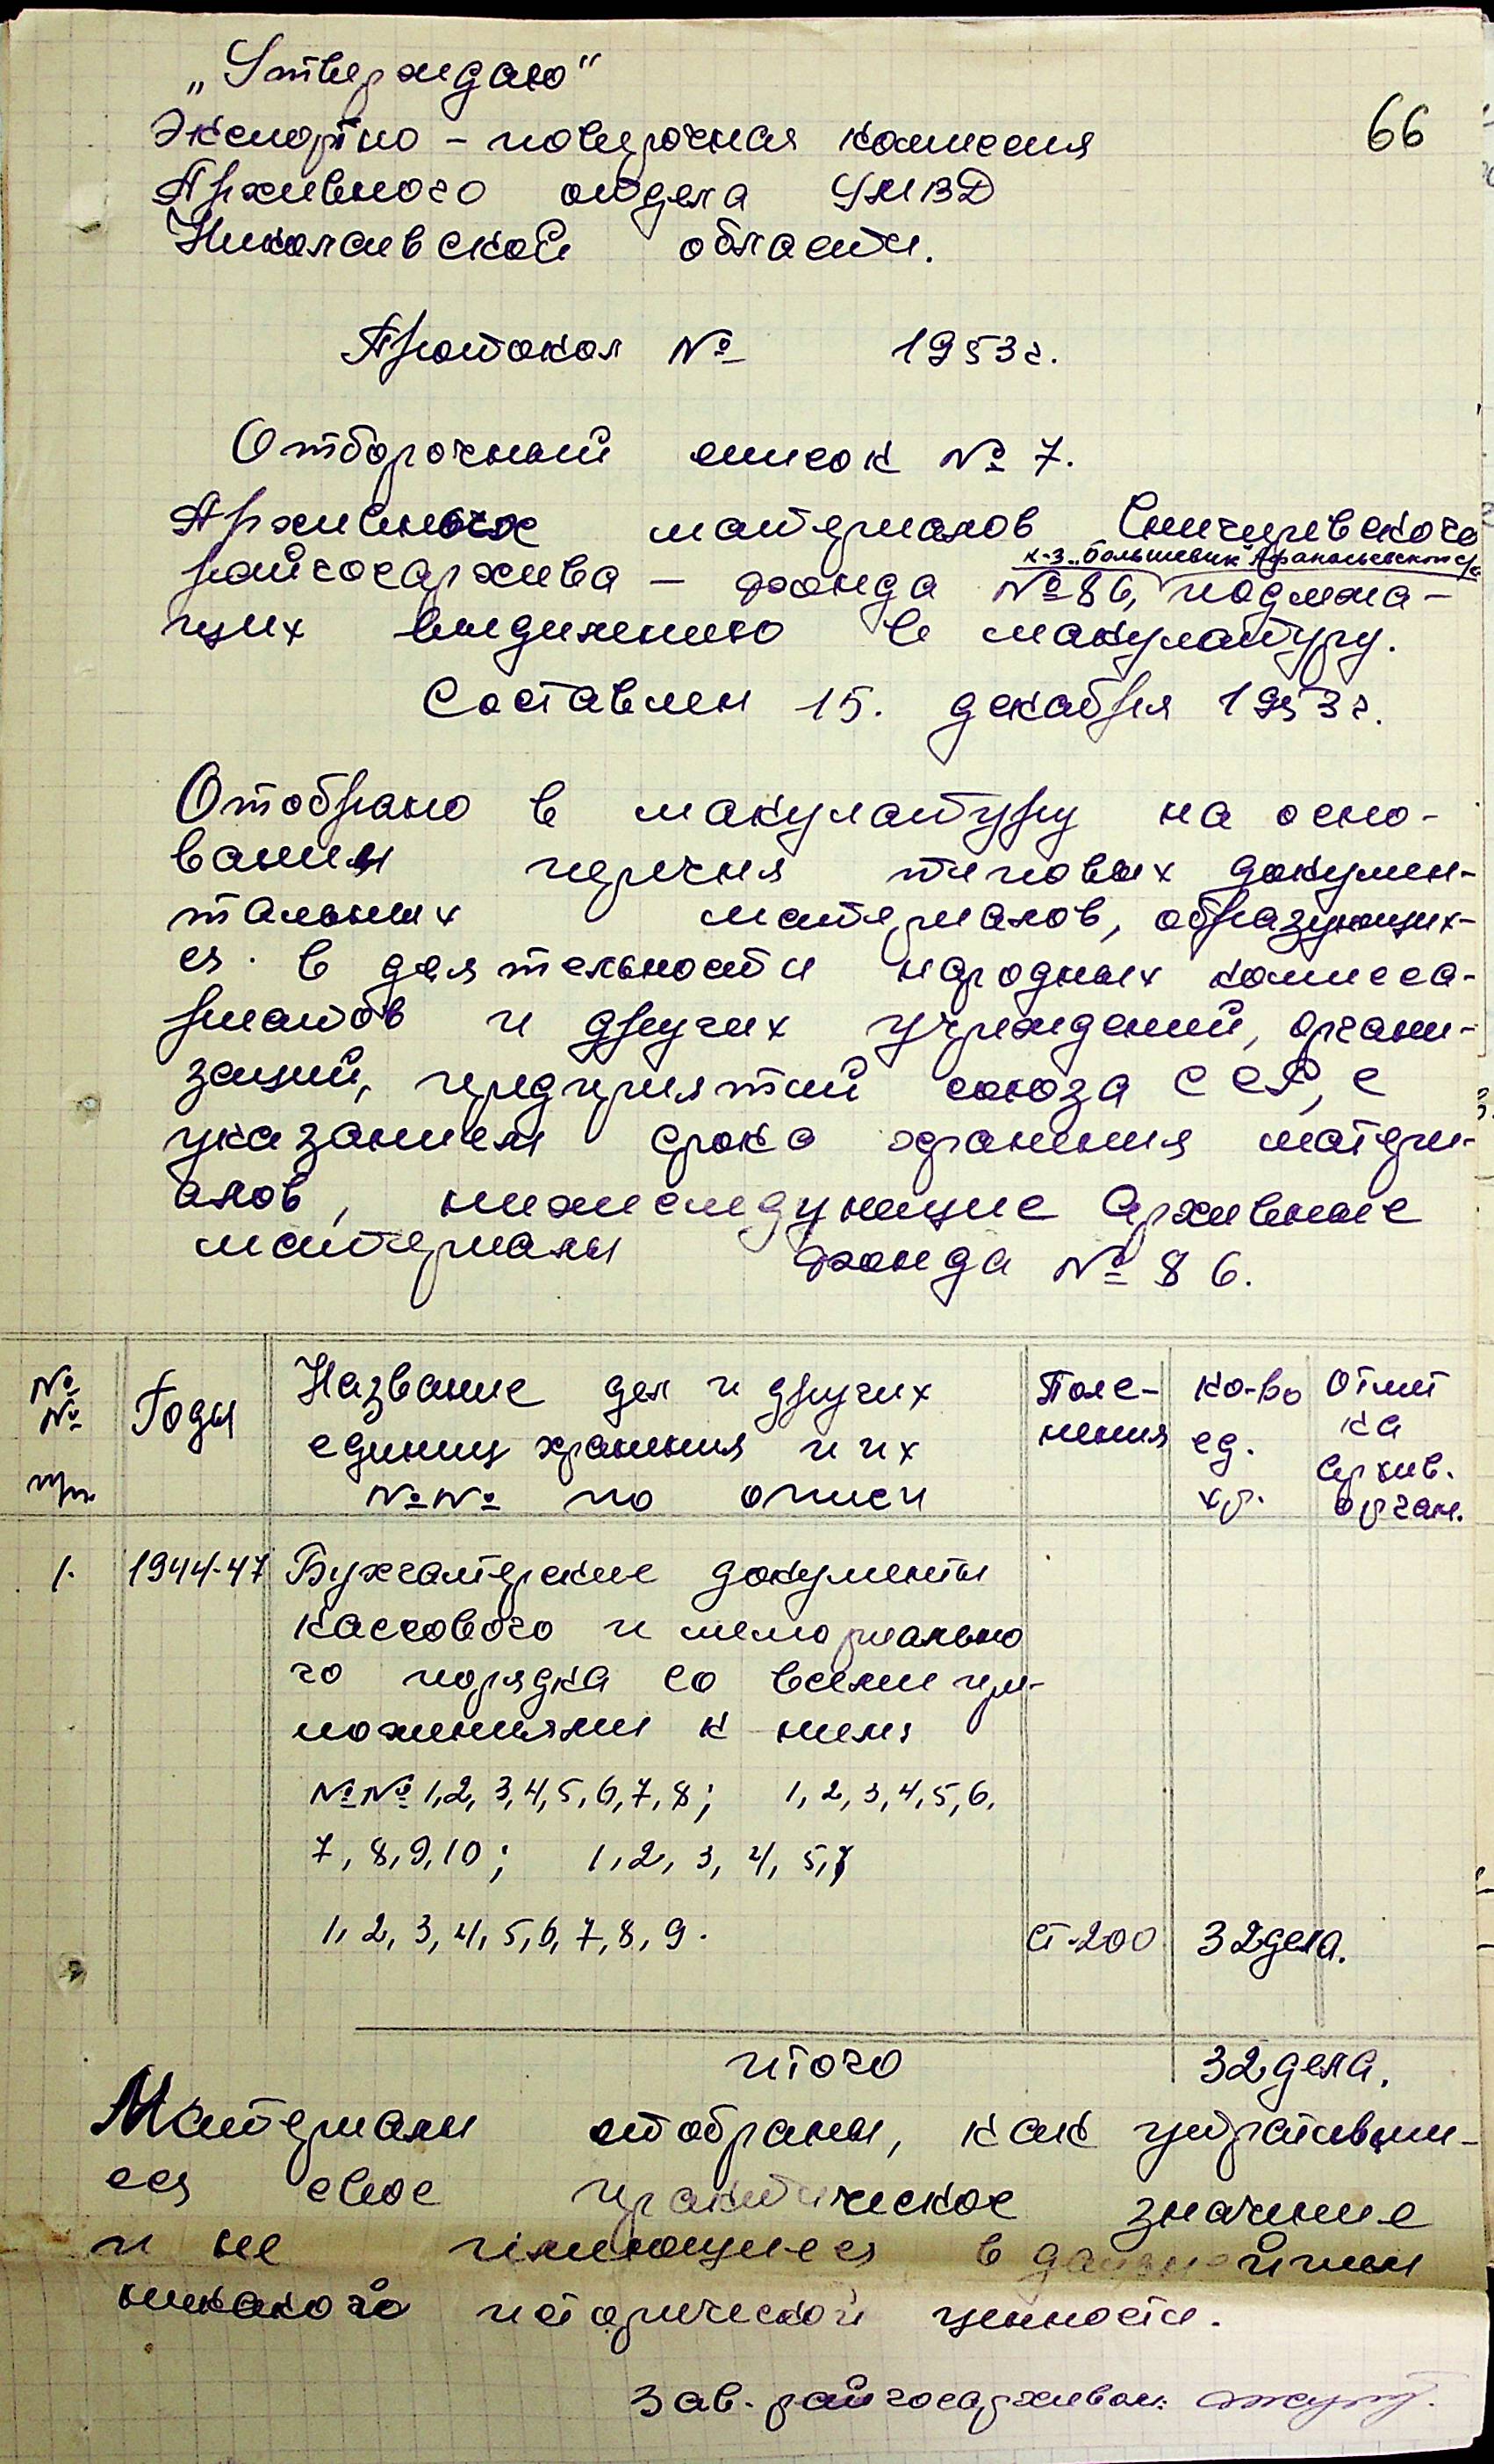 „Утверждаю“
66
Экспертно - поверочная комиссия
Архивного отдела УМВД
Николаевской области.
Протокол № 1953 г.
Отборочный список № 7.
Архивных материалов Снигиревского
к-з „Большевик" Афанасьевского с/с
райгосархива - фонда № 86, подлежа-
щих выделению в макулатуру.
Составлен 15. декабря 1953 г.
Отобрано в макулатуру на осно-
вании перечня типовых докумен-
тальных материалов, образующих-
ся в деятельности народных комисса-
риатов и других учреждений, органи-
заций, предприятий союза ССР, с
указанием срока хранения матери-
алов, нижеследующие архивные
материалы фонда № 86.
№ № пп Годы Название дел и других единиц хранения и их №№ по описи Пояснения ко-во ед. хр. Отмет ка архив. орган.
1. 1944-47 Бухгалтерские документы
кассового и мемориально
го порядка со всеми при-
ложениями к ним
№№ 1,2,3,4,5,6,7,8; 1,2,3,4,5,6,
7,8,9,10; 1,2,3,4,5,
1,2,3,4,5,6,7,8,9. ст-200 32 дела.
итого 32 дела.
Материалы отобраны, как утративши-
еся свое практическое значение
и не имеющиеся в дальнейшем
никакого исторической ценности.
Зав. райгосархивом